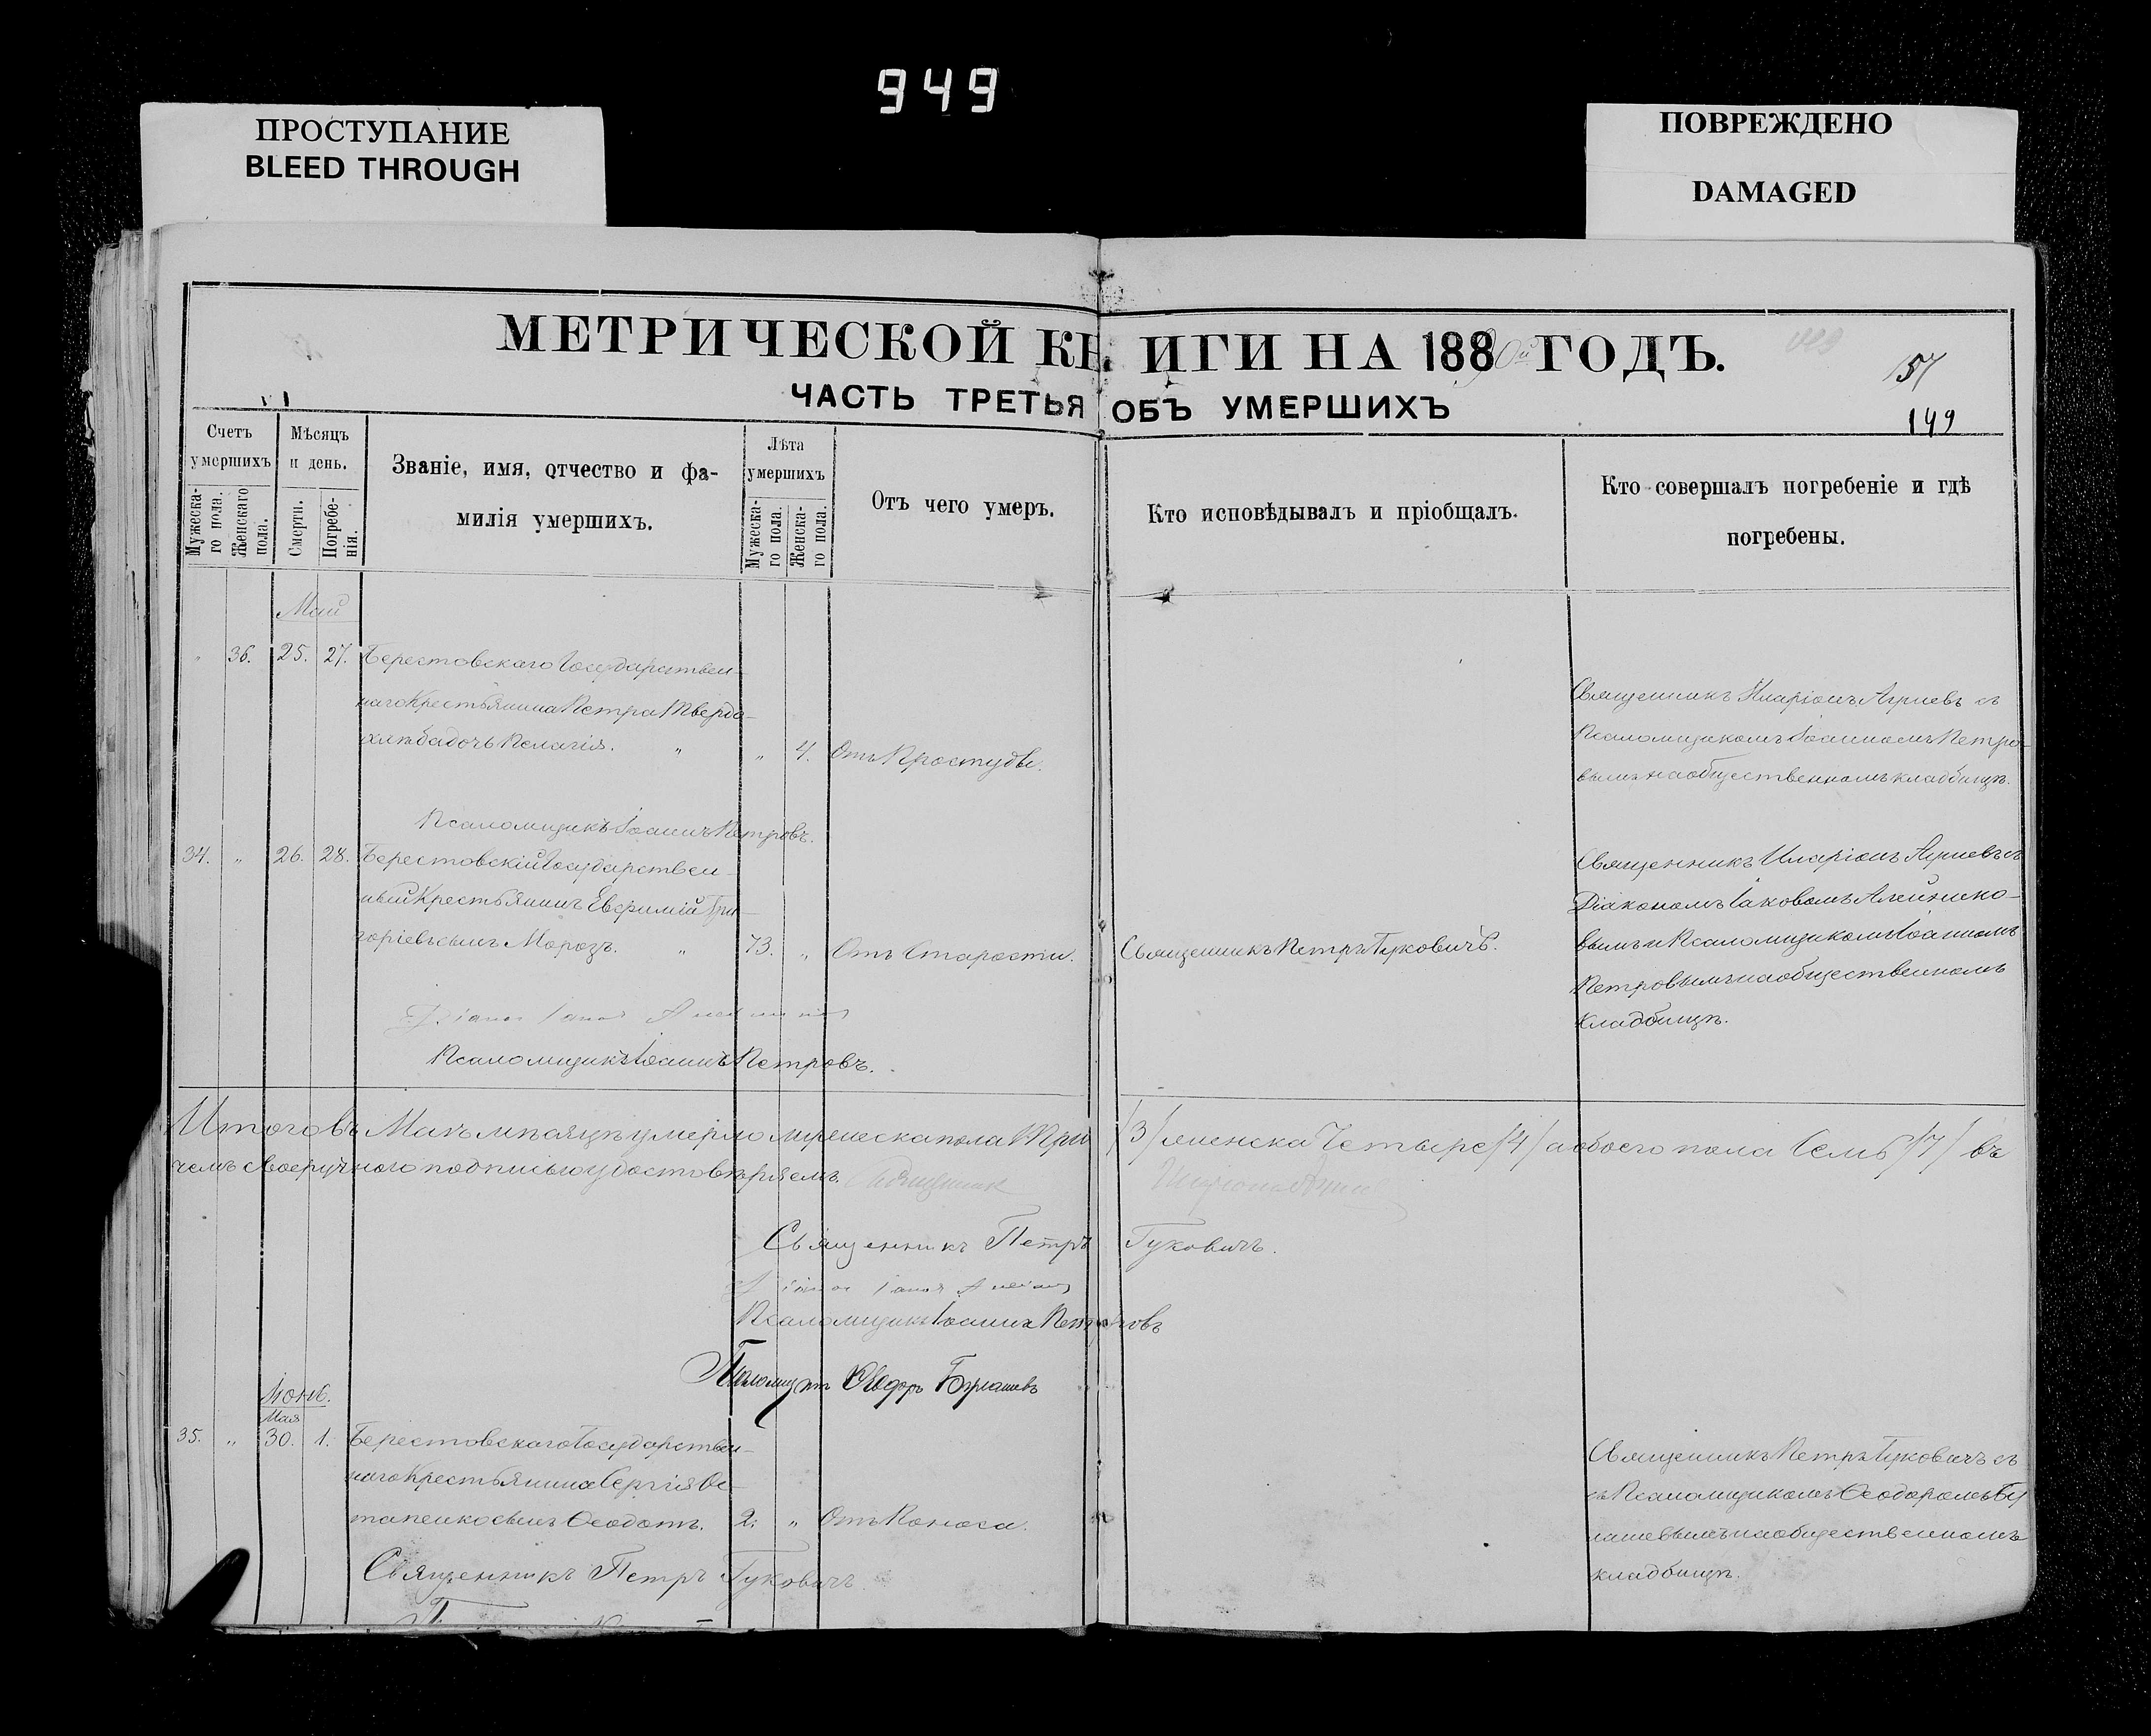 949
ПРОСТУПАНИЕ
BLEED THROUGH
ПОВРЕЖДЕНО
DAMAGED
МЕТРИЧЕСКОЙ КНИГИ НА 1880й ГОДЪ.
ЧАСТЬ ТРЕТЬЯ ОБЪ УМЕРШИХЪ
149
Счетъ умершихъ
Мужеска-го пола.
Женскаго пола.
Мѣсяцъ и день.
Смерти.
Погребе-нія.
Званіе, имя, отчество и фа-
милія умершихъ.
Лѣта умершихъ
Мужеска-го пола.
Женска-го пола.
Отъ чего умеръ.
Кто исповѣдывалъ и пріобщалъ.
Кто совершалъ погребеніе и гдѣ
погребены.
Май
" 36. 25. 27. Берестовскаго Государствен-
наго Крестьянина Петра Твердо-
хлѣба дочь Пелагія. " " 4. Отъ Простуды.
Священникъ Иларіонъ съ
Псаломщикомъ Іоанномъ Петро-
вымъ на общественномъ кладбищѣ.
Псаломщикъ Іоаннъ Петровъ.
34. " 26. 28. Берестовскій Государствен-
ный Крестьянинъ Евфимій Гри-
горіевъ сынъ Морозъ. " 73. " Отъ Старости. Священникъ Петръ Гуковичъ.
Священникъ Иларіонъ съ
Діакономъ Іаковомъ Алейнико-
вымъ и Псаломщикомъ Іоанномъ
Петровымъ на общественномъ
кладбищѣ.
Псаломщикъ Іоаннъ Петровъ.
Итого въ Маѣ мѣсяцѣ умерло мужеска пола Три /3/ женска Четыре /4/ а обоего пола Семь /7/ въ
чемъ своеручною подписью удостовѣряемъ. Священник
Священникъ Петръ Гуковичъ.
Псаломщикъ Іоаннъ Петровъ
Псаломщикъ Ѳеодоръ
Іюнь.
Мая
35. " 30. 1. Берестовскаго Государствен-
наго Крестьянина Сергія Ос-
тапенко сынъ Ѳеодотъ. 2. " Отъ Поноса.
Священникъ Петръ Гуковичъ съ
съ Псаломщикомъ Ѳеодоромъ
на общественномъ
кладбищѣ.
Священникъ Петръ Гуковичъ